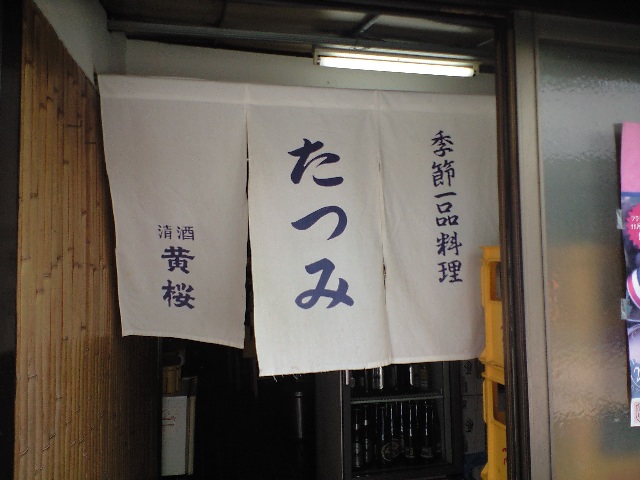 季節一品料理
たつみ
清酒
黄桜